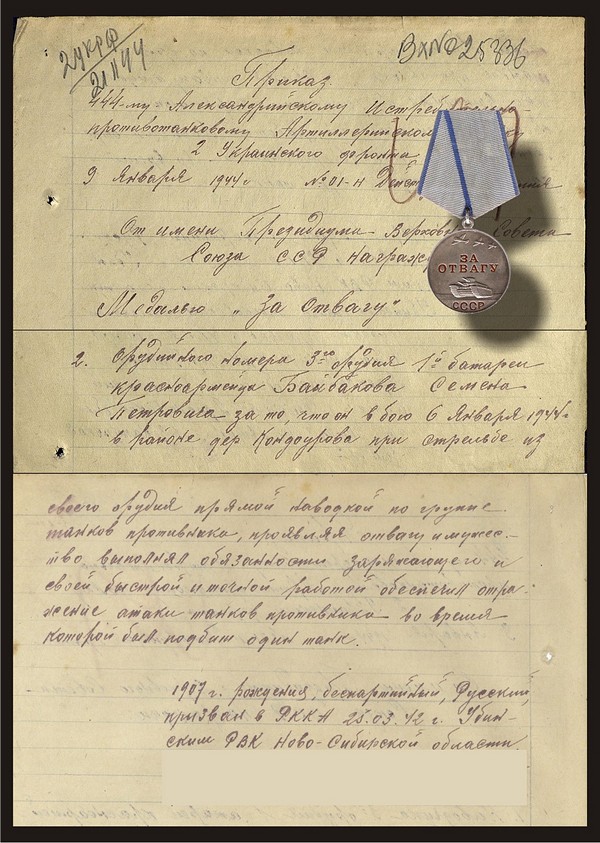 2 УКРФ
21 II 44
ВХ№ 25336
Приказ
444-му Александрийскому Истребительно-
противотанковому Артиллерийском
2 Украинского фронта
9 Января 1944г № 01-н
От имени Президиума Верков Совета
Союза ССР Награж
Медалью „За Отвагу".
ЗА
ОТВАГУ
СССР
2. Орудийного номера 3го орудия 1й батареи
красноармейца Байбакова Семена
Петровича за то, что он в бою 6 Января 1944г
в районе дер Кондоурова при стрельбе из
своего орудия прямой наводкой по группе
танков противника, проявляя отвагу и мужес-
тво, выполнял обязанности заряжающего и
своей быстрой и точной работой обеспечил отра-
жение атаки танков противника во время
которой был подбит один танк.
1907 г. рождения, беспартийный, Русский,
призван в РККА 25.03.42 г. Убин-
ским РВК Ново-Сибирской области.